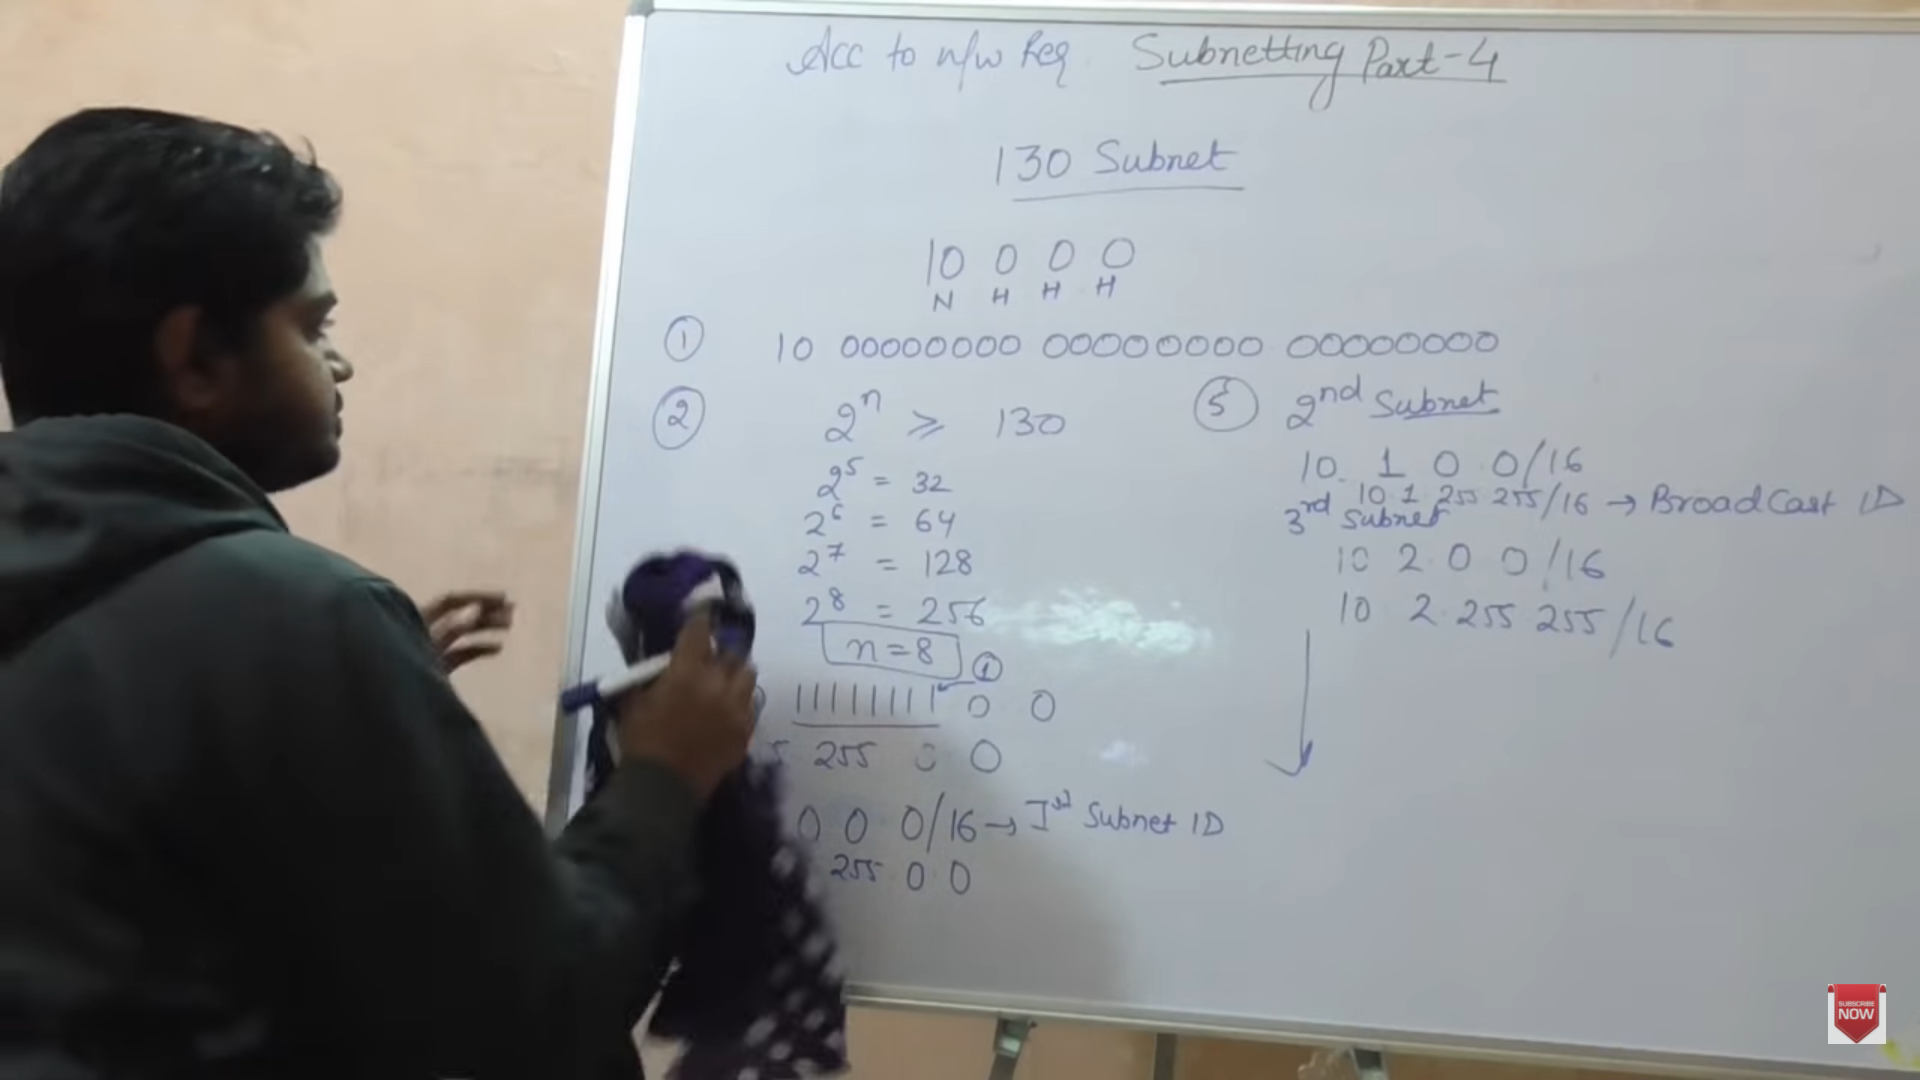 Acc to n/w Req Subnetting Part-4
130 Subnet
10 0 0 0
N H H H
① 10 00000000 00000000 00000000
② 2ⁿ ⩾ 130
2⁵ = 32
2⁶ = 64
2⁷ = 128
2⁸ = 256
n=8
①
11111111 0 0
255 0 0
0 0 0/16 → Ist Subnet ID
255 0 0
⑤ 2nd Subnet
10. 1 0 0/16
10 1 255 255/16 → BroadCast ID
3rd Subnet
10 2 0 0/16
10 2 255 255/16
SUBSCRIBE
NOW